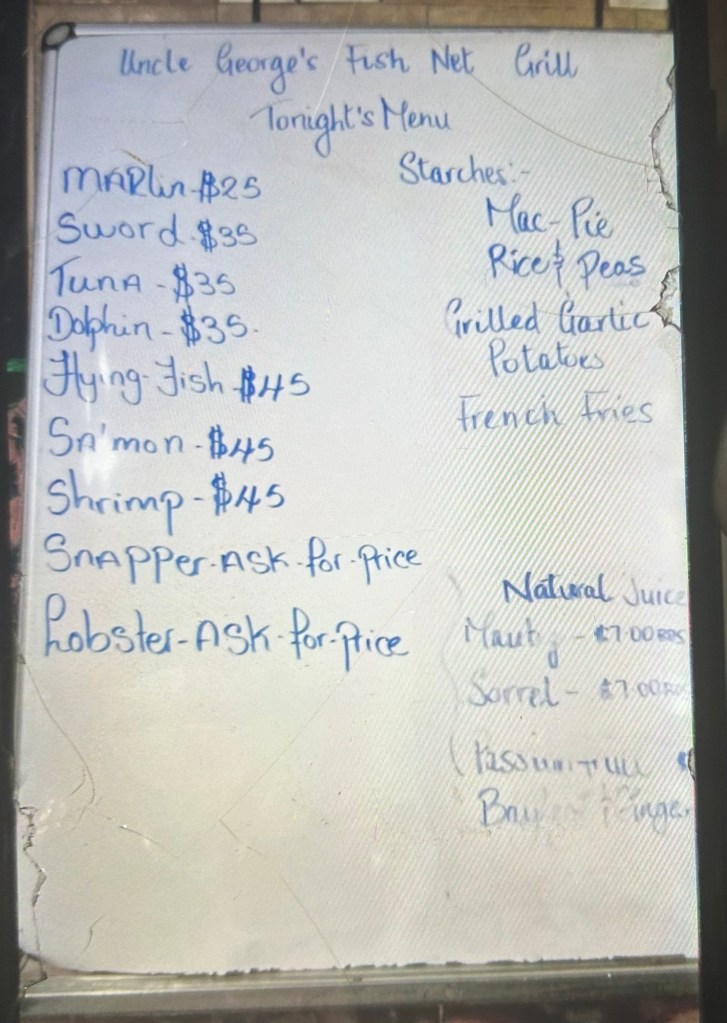 Uncle George's Fish Net Grill
Tonight's Menu
MARlin-$25
Sword-$35
TunA-$35
Dolphin-$35-
Flying-Fish-$45
SA'mon-$45
Shrimp-$45
SnAPPer-ASK-for-price
Lobster-ASK-for-price
Starches:-
Mac-Pie
Rice & Peas
Grilled Garlic
Potatoes
French Fries
Natural Juice
Mauby - $7.00BDS
Sorrel - $7.00